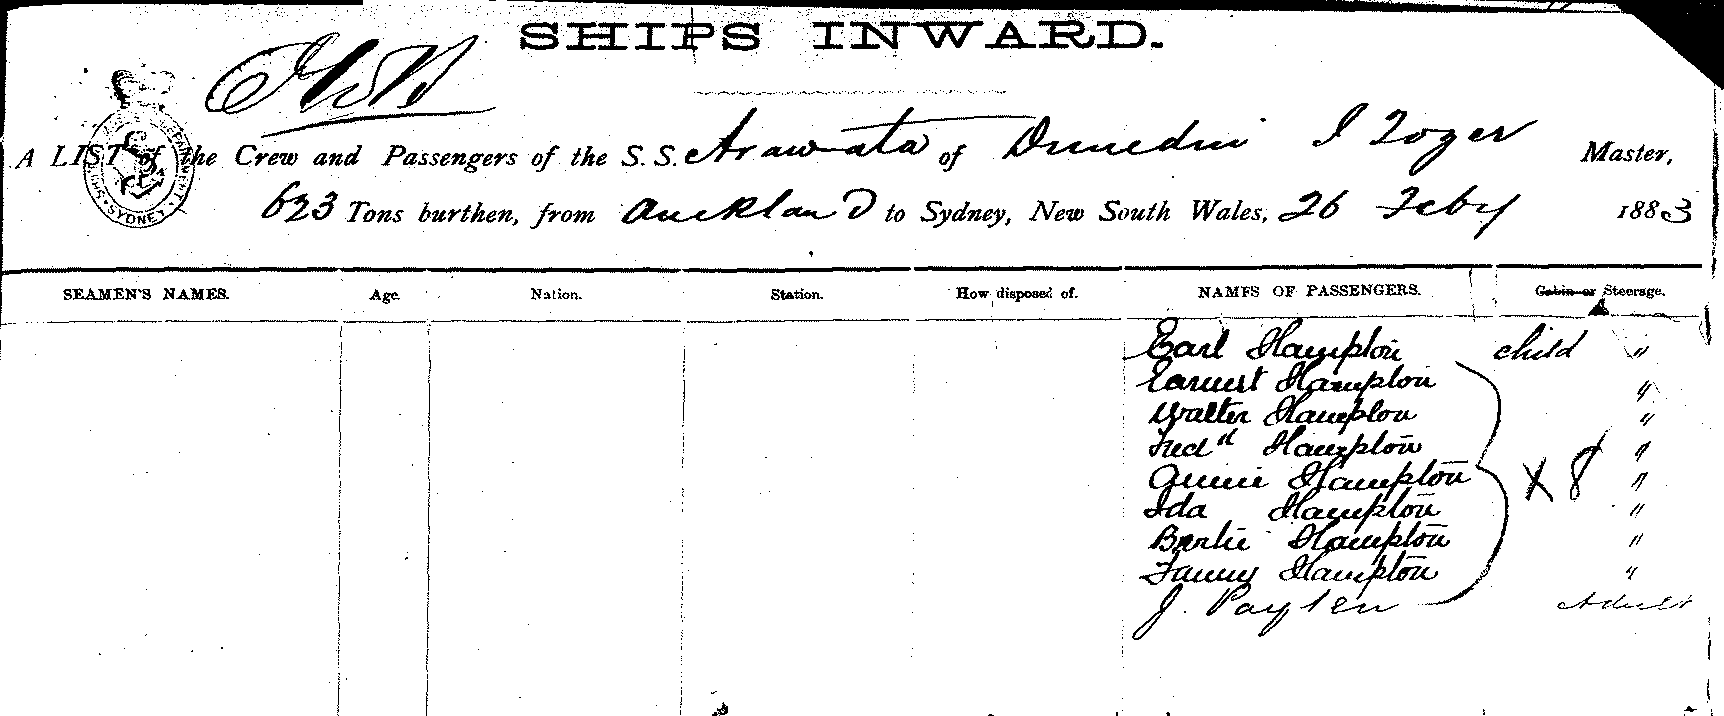 SHIPS INWARD.
SHIPPING DEPARTMENT. SYDNEY
A LIST of the Crew and Passengers of the S.S. Arawata of Dunedin J Tozer Master,
623 Tons burthen, from Auckland to Sydney, New South Wales, 26 Feby 1883
SEAMEN'S NAMES. Age. Nation. Station. How disposed of. NAMES OF PASSENGERS. Cabin or Steerage.
Earl Hampton child "
Earnest Hampton "
Walter Hampton "
Fredk Hampton "
Annie Hampton X 8 "
Ida Hampton "
Bertie Hampton "
Fanny Hampton "
J. Payten Adult